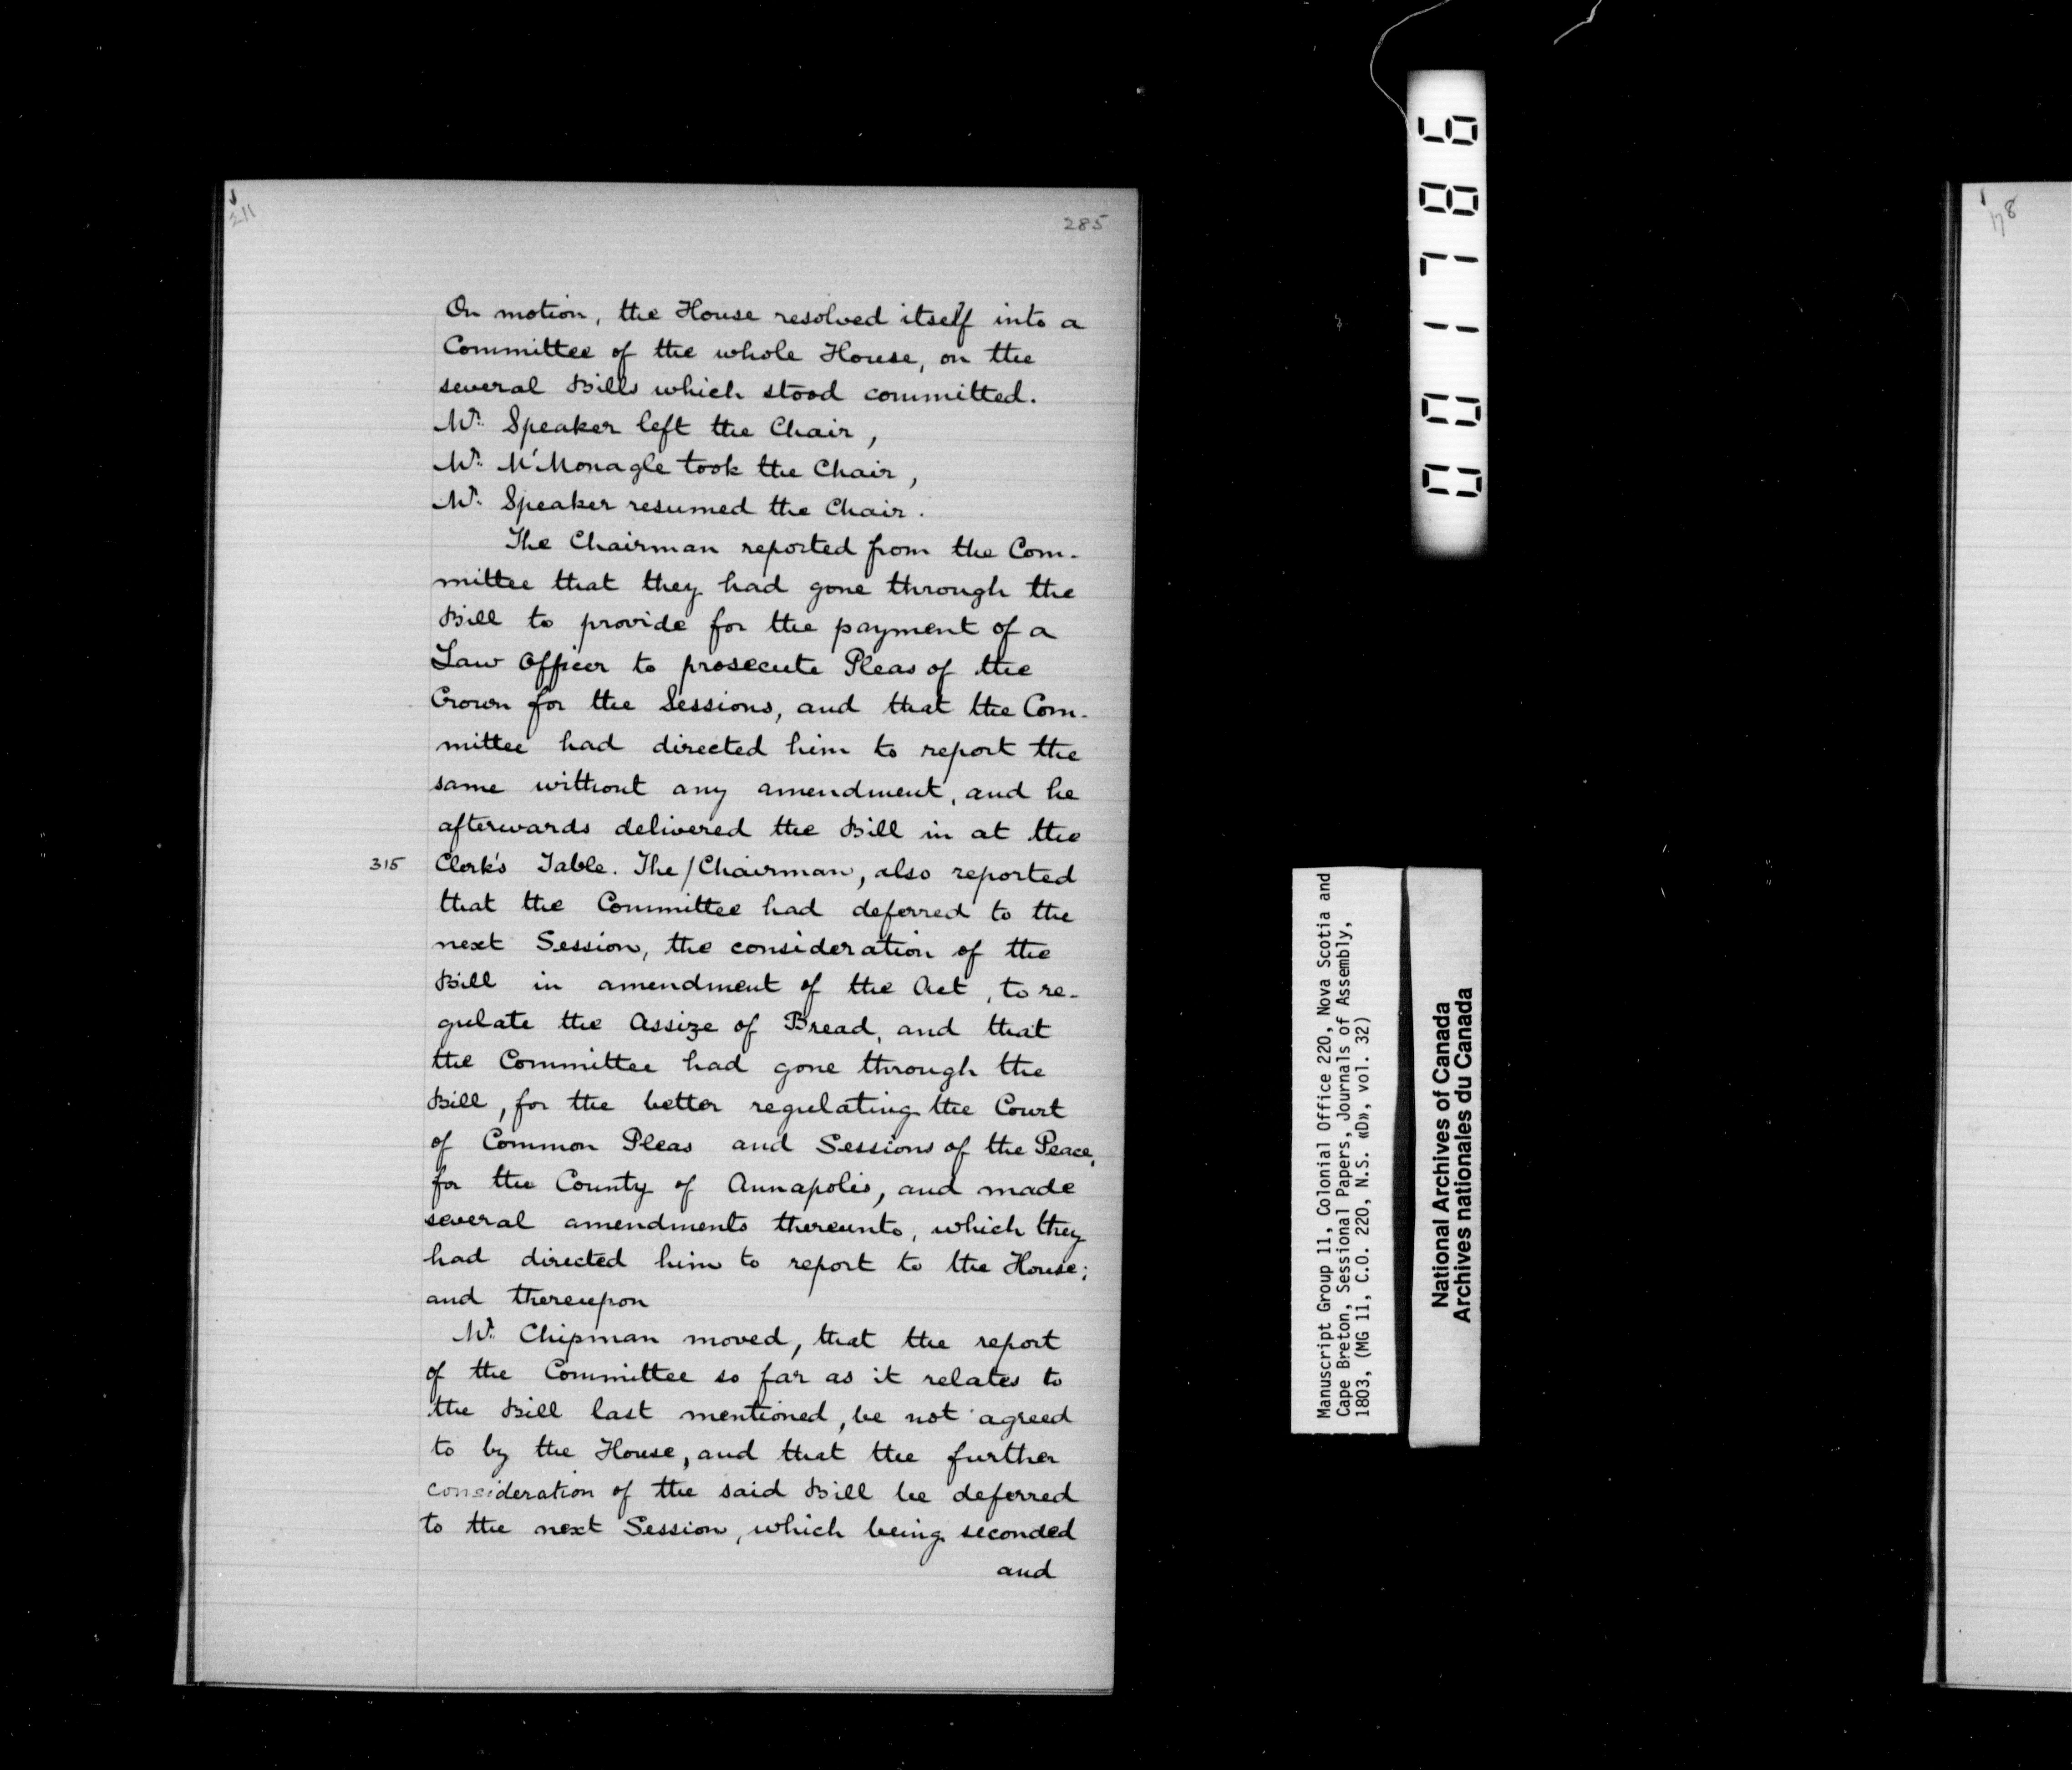 211
285
On motion, the House resolved itself into a
Committee of the whole House, on the
several Bills which stood committed.
Mr. Speaker left the Chair,
Mr. M'Monagle took the Chair,
Mr. Speaker resumed the Chair.
The Chairman reported from the Com-
mittee that they had gone through the
Bill to provide for the payment of a
Law Officer to prosecute Pleas of the
Crown for the Sessions, and that the Com-
mittee had directed him to report the
same without any amendment, and he
afterwards delivered the Bill in at the
315 Clerk's Table. The/Chairman, also reported
that the Committee had deferred to the
next Session, the consideration of the
Bill in amendment of the Act, to re-
gulate the Assize of Bread, and that
the Committee had gone through the
Bill, for the better regulating the Court
of Common Pleas and Sessions of the Peace,
for the County of Annapolis, and made
several amendments thereunto, which they
had directed him to report to the House;
and thereupon
Mr. Chipman moved, that the report
of the Committee so far as it relates to
the Bill last mentioned, be not agreed
to by the House, and that the further
consideration of the said Bill be deferred
to the next Session, which being seconded
and
001786
Manuscript Group 11, Colonial Office 220, Nova Scotia and
Cape Breton, Sessional Papers, Journals of Assembly,
1803, (MG 11, C.O. 220, N.S. «D», vol. 32)
National Archives of Canada
Archives nationales du Canada
178